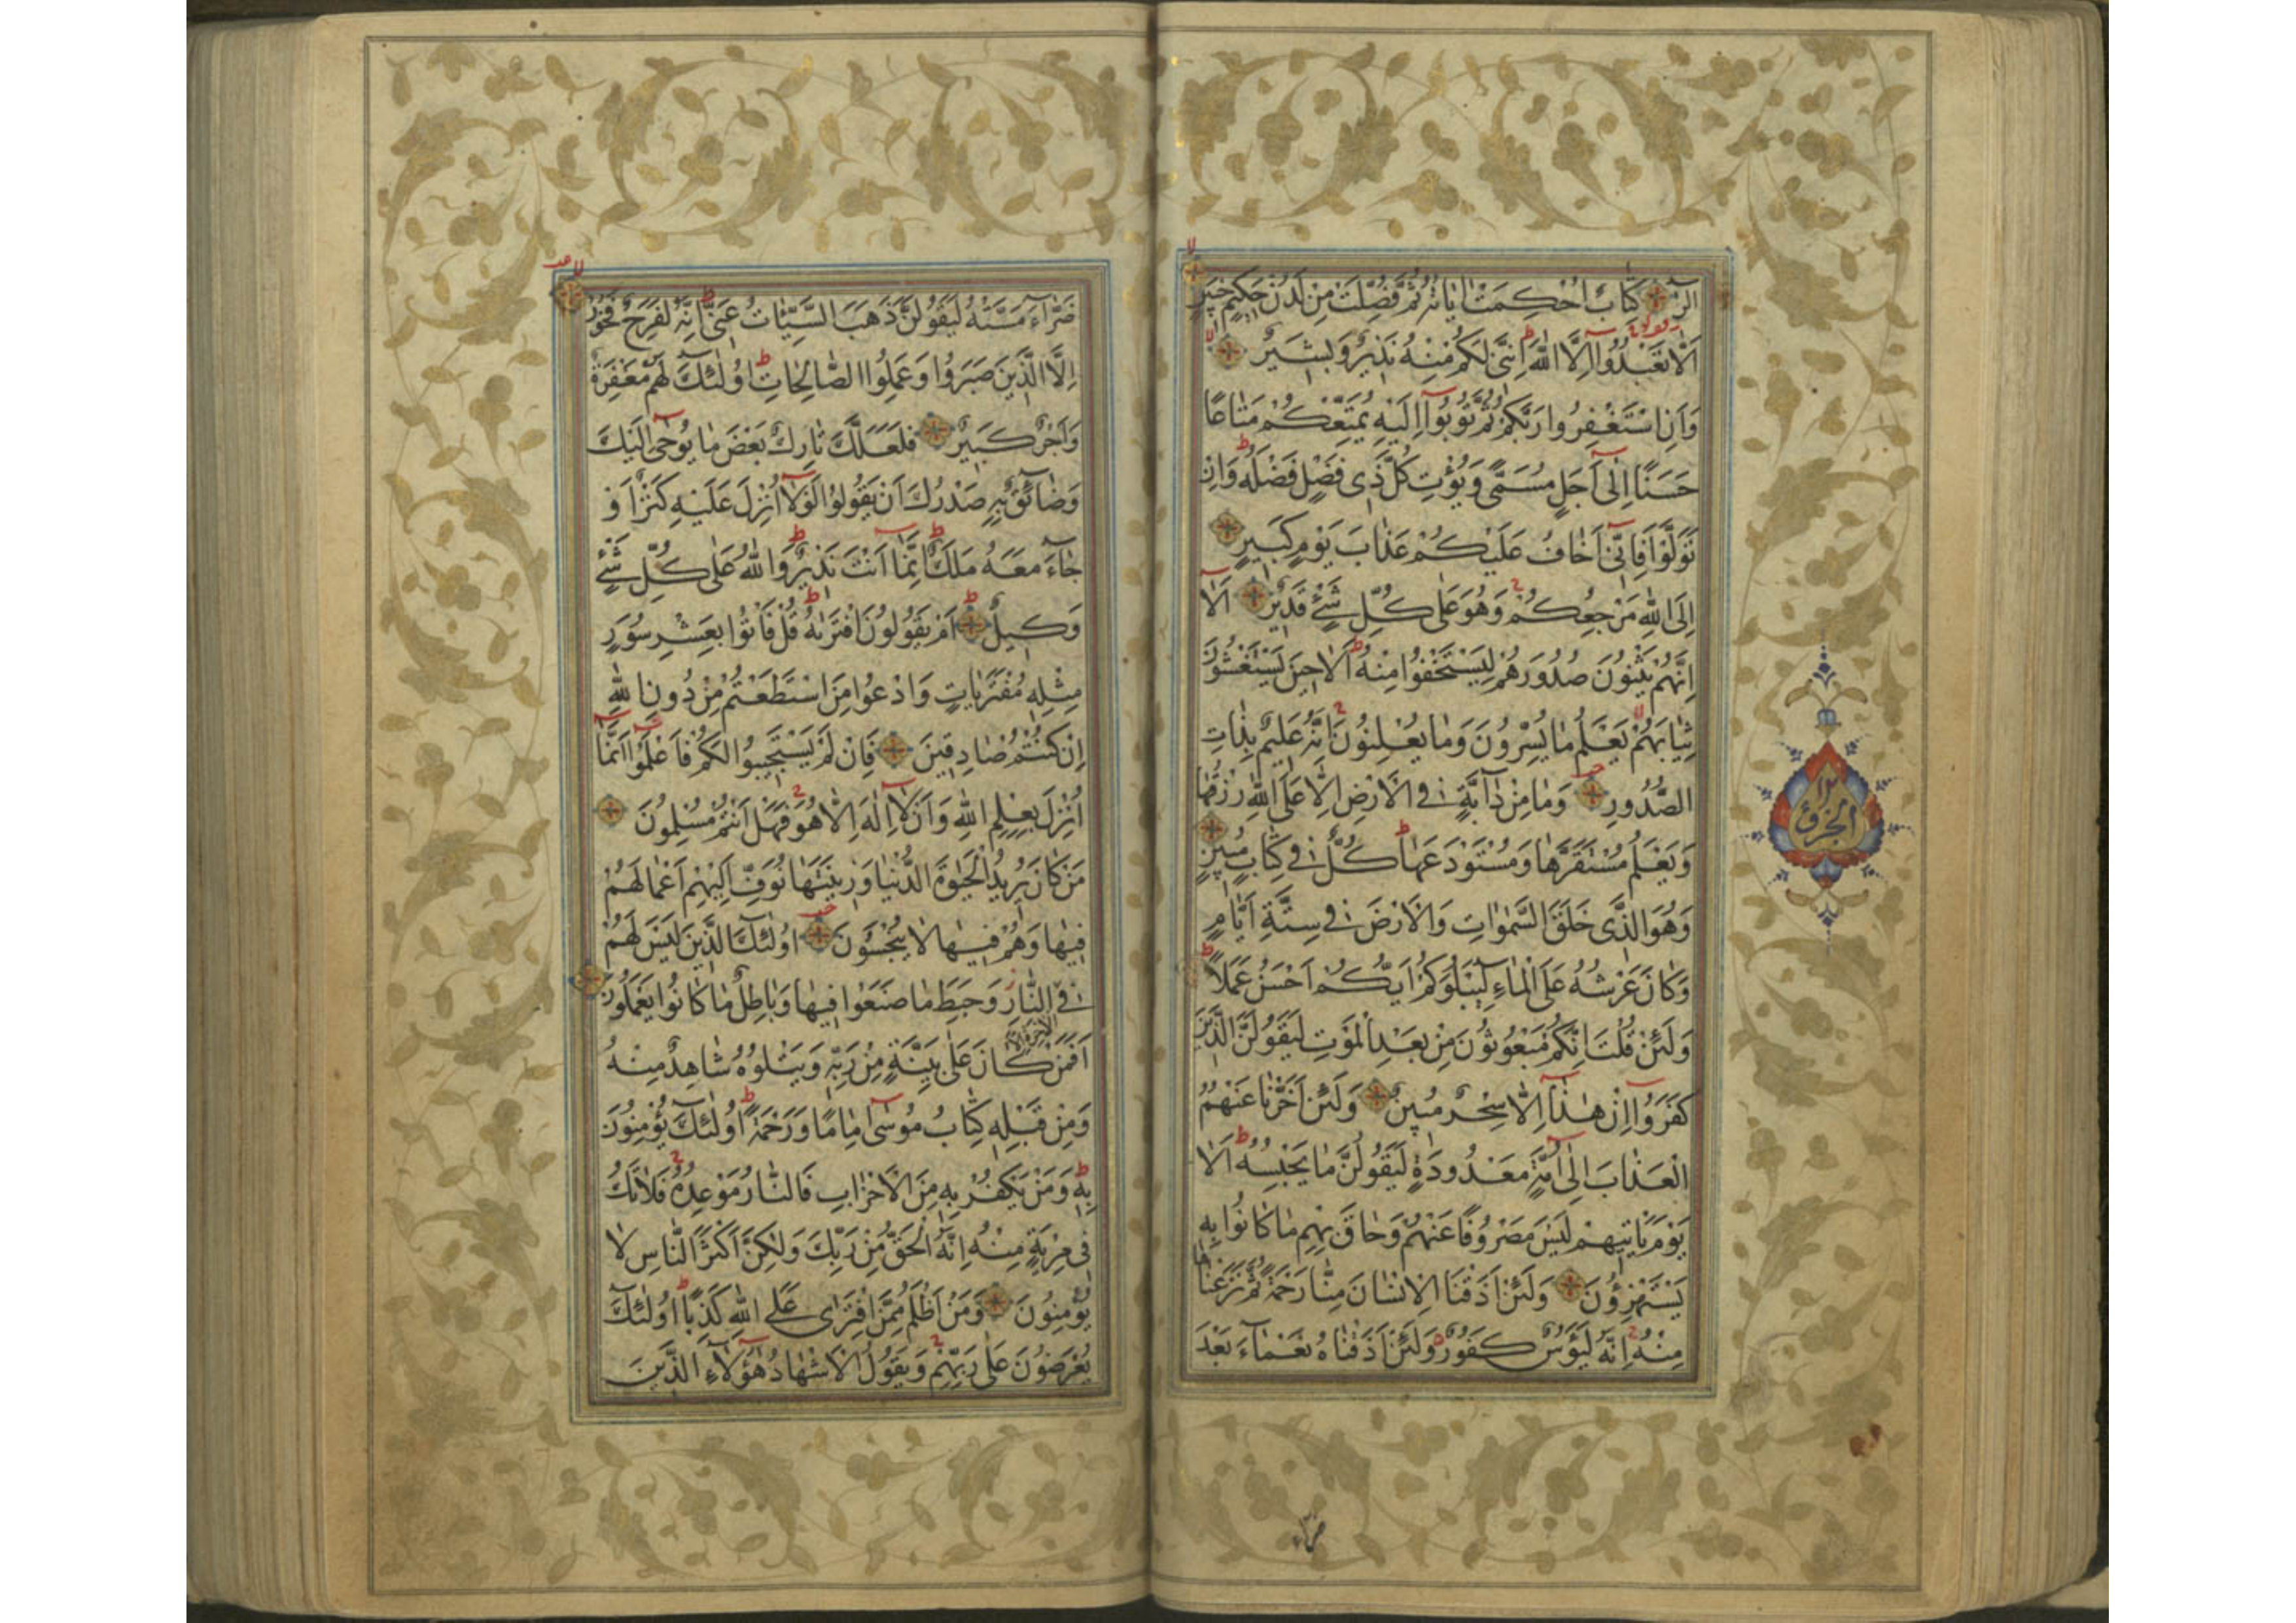 الٓرٰ كِتَابٌ اُحْكِمَتْ اٰيَاتُهُ ثُمَّ فُصِّلَتْ مِنْ لَدُنْ حَكِيمٍ خَبِيرٍ
اَلَّا تَعْبُدُوٓا اِلَّا اللّٰهَ اِنَّنِى لَكُمْ مِنْهُ نَذِيرٌ وَبَشِيرٌ
وَاَنِ اسْتَغْفِرُوا رَبَّكُمْ ثُمَّ تُوبُوٓا اِلَيْهِ يُمَتِّعْكُمْ مَتَاعًا
حَسَنًا اِلٰٓى اَجَلٍ مُسَمًّى وَيُؤْتِ كُلَّ ذِى فَضْلٍ فَضْلَهُ وَاِنْ
تَوَلَّوْا فَاِنِّىٓ اَخَافُ عَلَيْكُمْ عَذَابَ يَوْمٍ كَبِيرٍ
اِلَى اللّٰهِ مَرْجِعُكُمْ وَهُوَ عَلٰى كُلِّ شَىْءٍ قَدِيرٌ اَلَآ
اِنَّهُمْ يَثْنُونَ صُدُورَهُمْ لِيَسْتَخْفُوا مِنْهُ اَلَا حِينَ يَسْتَغْشُونَ
ثِيَابَهُمْ يَعْلَمُ مَا يُسِرُّونَ وَمَا يُعْلِنُونَ اِنَّهُ عَلِيمٌ بِذَاتِ
الصُّدُورِ وَمَا مِنْ دَآبَّةٍ فِى الْاَرْضِ اِلَّا عَلَى اللّٰهِ رِزْقُهَا
وَيَعْلَمُ مُسْتَقَرَّهَا وَمُسْتَوْدَعَهَا كُلٌّ فِى كِتَابٍ مُبِينٍ
وَهُوَ الَّذِى خَلَقَ السَّمٰوَاتِ وَالْاَرْضَ فِى سِتَّةِ اَيَّامٍ
وَكَانَ عَرْشُهُ عَلَى الْمَآءِ لِيَبْلُوَكُمْ اَيُّكُمْ اَحْسَنُ عَمَلًا
وَلَئِنْ قُلْتَ اِنَّكُمْ مَبْعُوثُونَ مِنْ بَعْدِ الْمَوْتِ لَيَقُولَنَّ الَّذِينَ
كَفَرُوٓا اِنْ هٰذَآ اِلَّا سِحْرٌ مُبِينٌ وَلَئِنْ اَخَّرْنَا عَنْهُمُ
الْعَذَابَ اِلٰٓى اُمَّةٍ مَعْدُودَةٍ لَيَقُولُنَّ مَا يَحْبِسُهُ اَلَا
يَوْمَ يَاْتِيهِمْ لَيْسَ مَصْرُوفًا عَنْهُمْ وَحَاقَ بِهِمْ مَا كَانُوا بِهِ
يَسْتَهْزِؤُنَ وَلَئِنْ اَذَقْنَا الْاِنْسَانَ مِنَّا رَحْمَةً ثُمَّ نَزَعْنَاهَا
مِنْهُ اِنَّهُ لَيَؤُسٌ كَفُورٌ وَلَئِنْ اَذَقْنَاهُ نَعْمَآءَ بَعْدَ
ضرآء
الجزؤ
١٢
ضَرَّآءَ مَسَّتْهُ لَيَقُولَنَّ ذَهَبَ السَّيِّئَاتُ عَنِّى اِنَّهُ لَفَرِحٌ فَخُورٌ
اِلَّا الَّذِينَ صَبَرُوا وَعَمِلُوا الصَّالِحَاتِ اُولٰٓئِكَ لَهُمْ مَغْفِرَةٌ
وَاَجْرٌ كَبِيرٌ فَلَعَلَّكَ تَارِكٌ بَعْضَ مَا يُوحٰٓى اِلَيْكَ
وَضَآئِقٌ بِهِ صَدْرُكَ اَنْ يَقُولُوا لَوْلَآ اُنْزِلَ عَلَيْهِ كَنْزٌ اَوْ
جَآءَ مَعَهُ مَلَكٌ اِنَّمَآ اَنْتَ نَذِيرٌ وَاللّٰهُ عَلٰى كُلِّ شَىْءٍ
وَكِيلٌ اَمْ يَقُولُونَ افْتَرٰيهُ قُلْ فَاْتُوا بِعَشْرِ سُوَرٍ
مِثْلِهِ مُفْتَرَيَاتٍ وَادْعُوا مَنِ اسْتَطَعْتُمْ مِنْ دُونِ اللّٰهِ
اِنْ كُنْتُمْ صَادِقِينَ فَاِنْ لَمْ يَسْتَجِيبُوا لَكُمْ فَاعْلَمُوٓا اَنَّمَآ
اُنْزِلَ بِعِلْمِ اللّٰهِ وَاَنْ لَآ اِلٰهَ اِلَّا هُوَ فَهَلْ اَنْتُمْ مُسْلِمُونَ
مَنْ كَانَ يُرِيدُ الْحَيٰوةَ الدُّنْيَا وَزِينَتَهَا نُوَفِّ اِلَيْهِمْ اَعْمَالَهُمْ
فِيهَا وَهُمْ فِيهَا لَا يُبْخَسُونَ اُولٰٓئِكَ الَّذِينَ لَيْسَ لَهُمْ
فِى الْاٰخِرَةِ اِلَّا النَّارُ وَحَبِطَ مَا صَنَعُوا فِيهَا وَبَاطِلٌ مَا كَانُوا يَعْمَلُونَ
اَفَمَنْ كَانَ عَلٰى بَيِّنَةٍ مِنْ رَبِّهِ وَيَتْلُوهُ شَاهِدٌ مِنْهُ
وَمِنْ قَبْلِهِ كِتَابُ مُوسٰٓى اِمَامًا وَرَحْمَةً اُولٰٓئِكَ يُؤْمِنُونَ
بِهِ وَمَنْ يَكْفُرْ بِهِ مِنَ الْاَحْزَابِ فَالنَّارُ مَوْعِدُهُ فَلَا تَكُ
فِى مِرْيَةٍ مِنْهُ اِنَّهُ الْحَقُّ مِنْ رَبِّكَ وَلٰكِنَّ اَكْثَرَ النَّاسِ لَا
يُؤْمِنُونَ وَمَنْ اَظْلَمُ مِمَّنِ افْتَرٰى عَلَى اللّٰهِ كَذِبًا اُولٰٓئِكَ
يُعْرَضُونَ عَلٰى رَبِّهِمْ وَيَقُولُ الْاَشْهَادُ هٰٓؤُلَآءِ الَّذِينَ